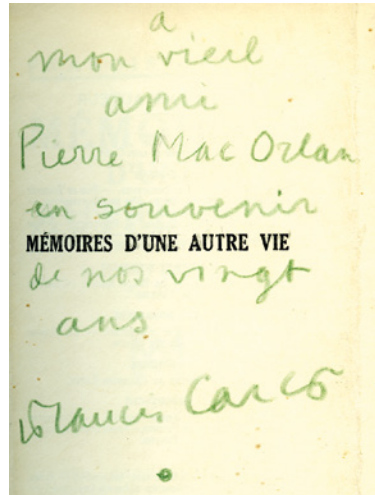 a
mon vieil
ami
Pierre Mac Orlan
en souvenir
MÉMOIRES D'UNE AUTRE VIE
de nos vingt
ans
Francis Carco